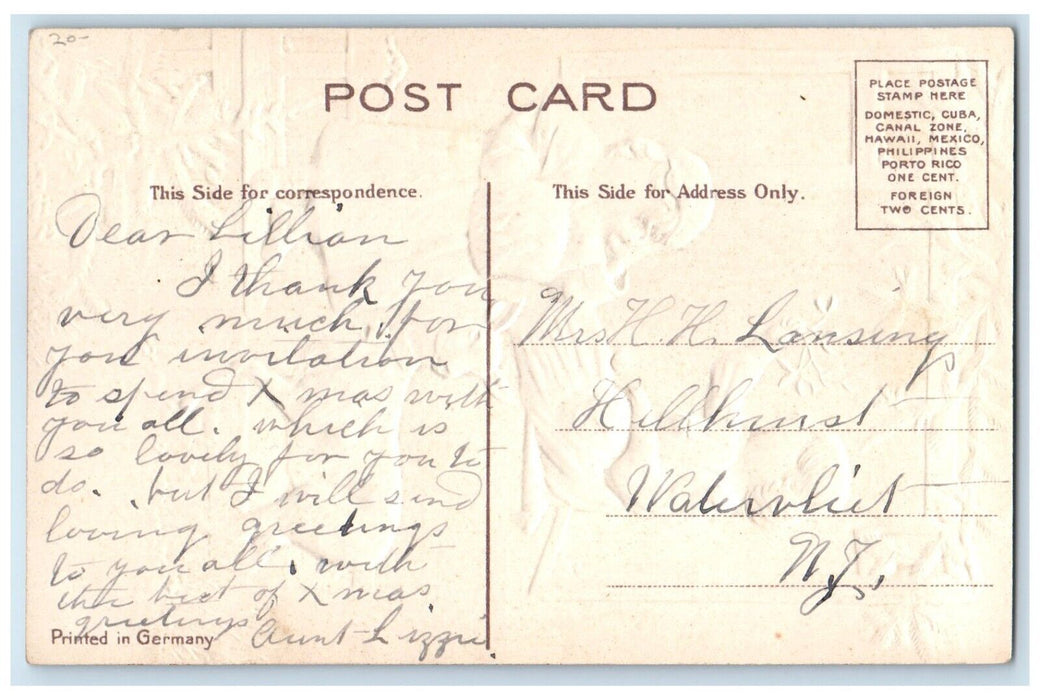 20-
POST CARD
PLACE POSTAGE
STAMP HERE
DOMESTIC, CUBA,
CANAL ZONE,
HAWAII, MEXICO,
PHILIPPINES
PORTO RICO
ONE CENT.
FOREIGN
TWO CENTS.
This Side for correspondence.
Dear Lillian
I thank you
very much for
you invitation
to spend X mas with
you all. which is
so lovely for you to
do. but I will send
loving greetings
to you all. with
the best of X mas
greetings
Aunt Lizzie.
Printed in Germany
This Side for Address Only.
Mrs H. H. Lansing
Hillhurst
Watervliet
N.Y.